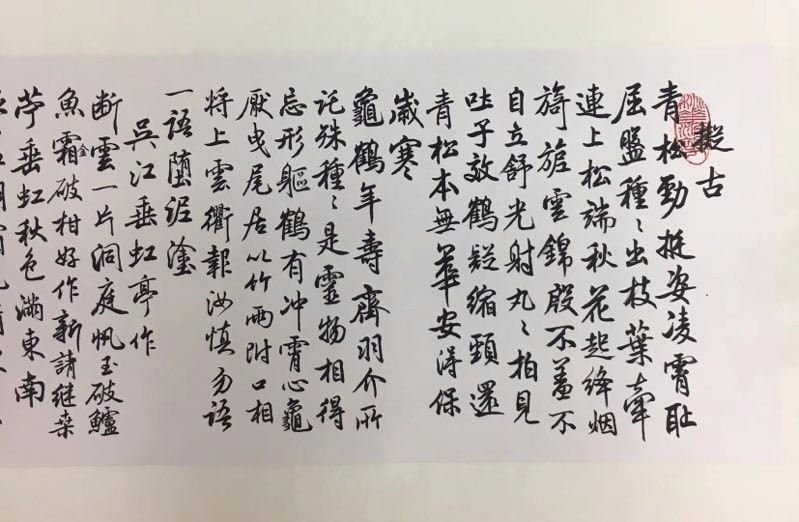 擬古
青松勁挺姿凌霄恥
屈盤種〻出枝葉牽
連上松端秋花起絳烟
旖旎雲錦殷不羞不
自立舒光射丸〻柏見
吐子效鶴疑縮頸還
青松本無華安得保
歲寒
龜鶴年壽齊羽介所
託殊種〻是靈物相得
忘形軀鶴有冲霄心龜
厭曳尾居以竹兩附口相
将上雲衢報汝慎勿語
一語墮泥塗
吳江垂虹亭作
断雲一片洞庭帆玉破鱸
魚霜金破柑好作新詩继桑
苧垂虹秋色滿東南